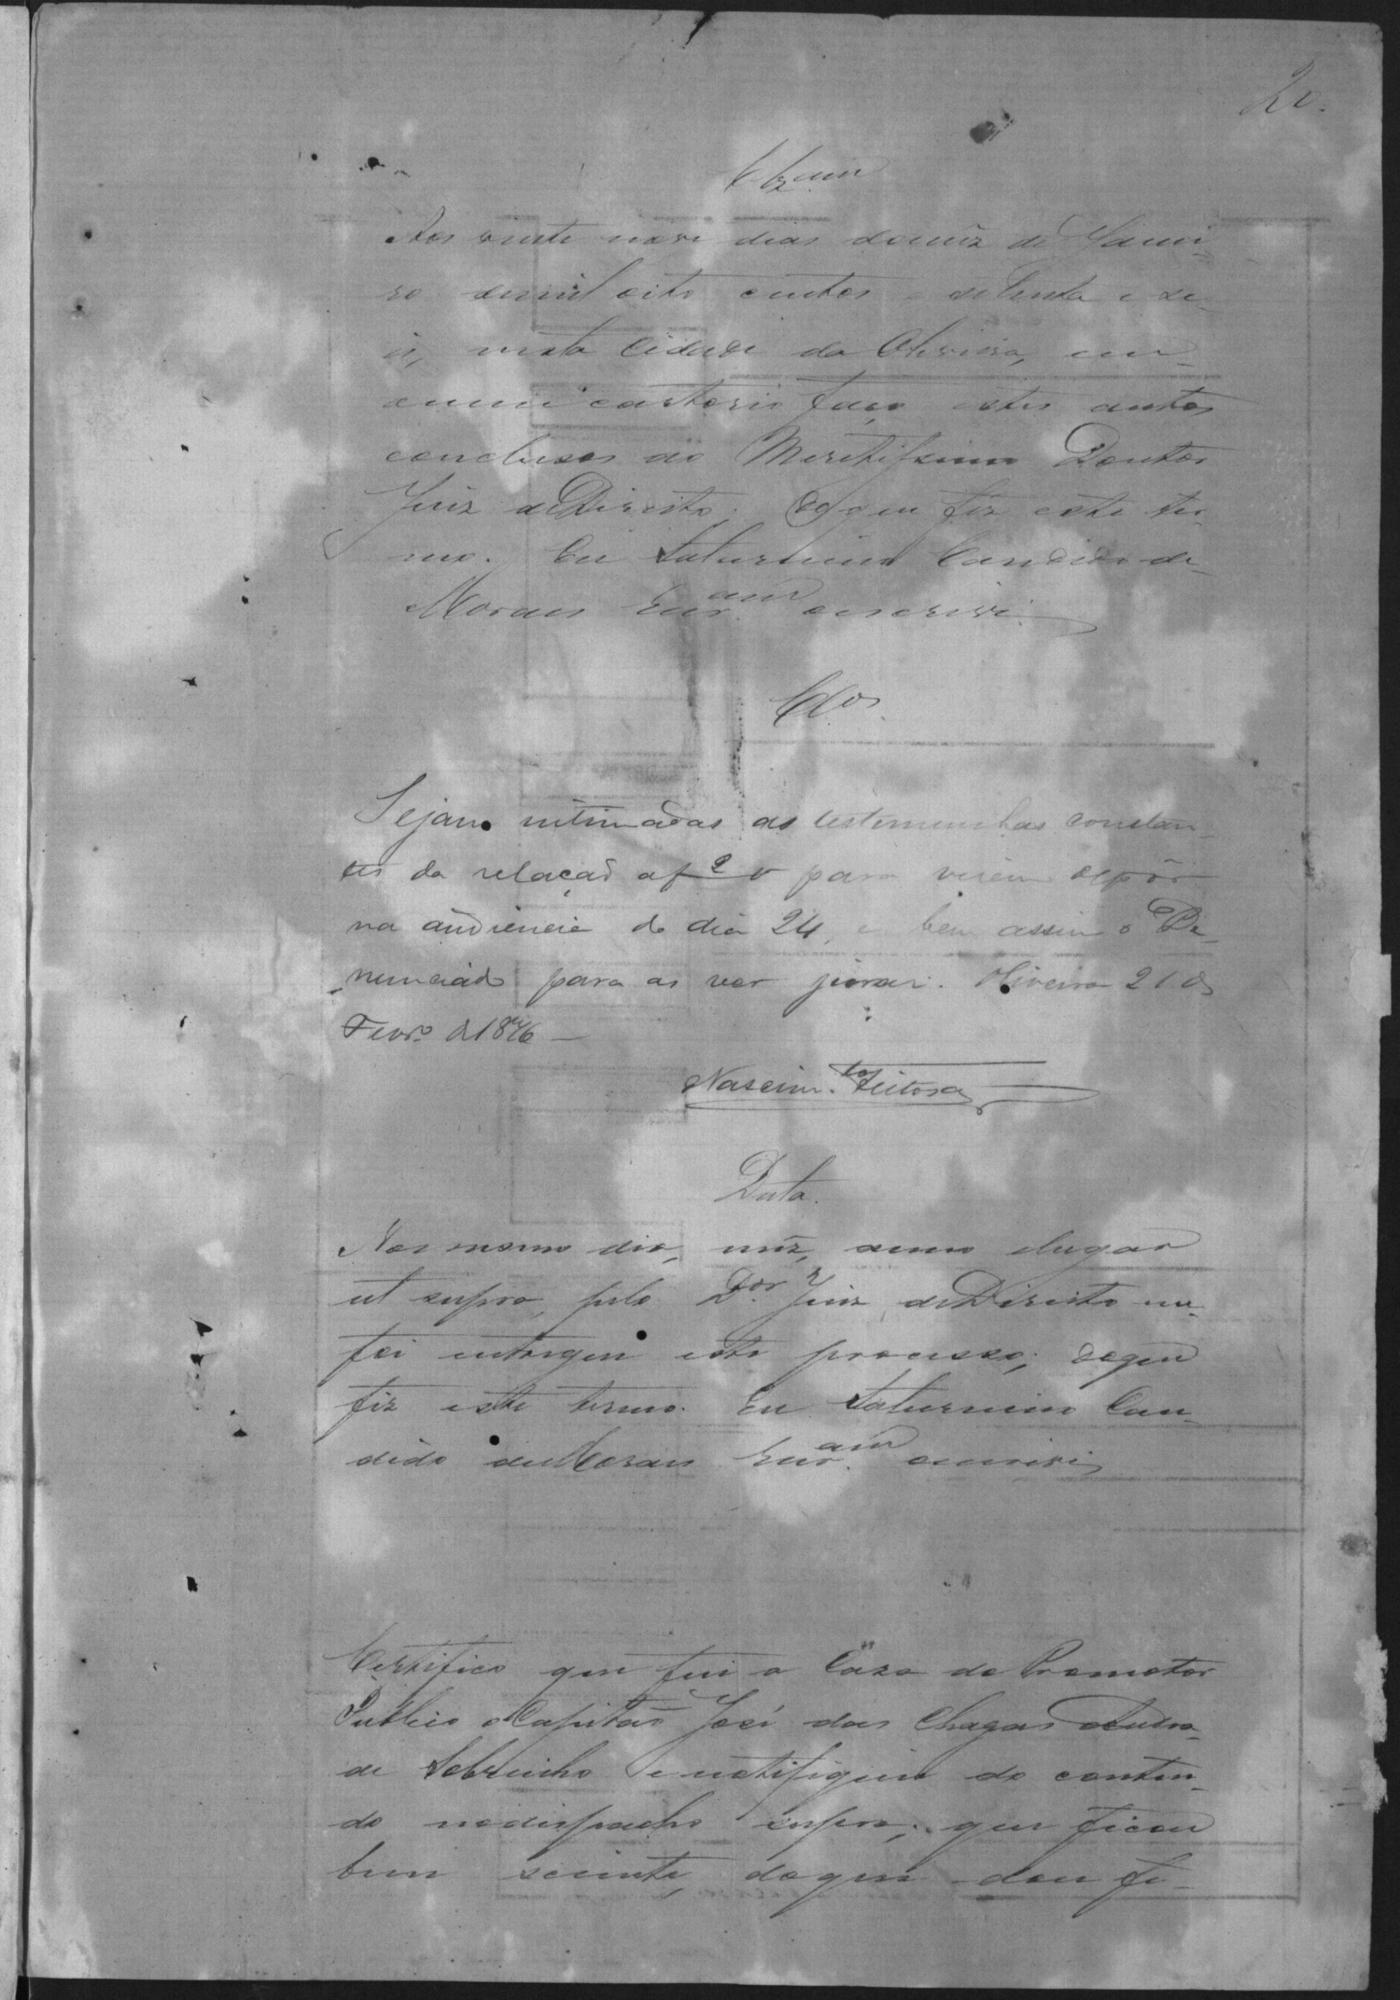 20.
Clz.am
Aos vinte nove dias do mez de Janei-
ro de mil oito centos e setenta e se-
is, nesta Cidade da Oliveira, em
o meu cartorio faço estes autos
conclusos ao Meretissimo Doutor
Juiz de Direito. Do que fiz este ter-
mo. Eu Saturnino Candido de
Moraes Escr.am o escrevi.
Clos.
Sejam intimadas as testemunhas constan-
tes da relação a f 2 v para virem depôr
na audiencia do dia 24, e bem assim o De-
nunciado para as ver jurar. Oliveira 21 de
Fevr.o de 1876 —
Nascim.to Feitosa
Data.
No mesmo dia, mez, anno e lugar
ut supra, pelo D.or Juiz de Direito me
foi entregue este processo; do que
fiz este termo. Eu Saturnino Can-
dido de Moraes Escr.am o escrevi
Certifico que fui a Caza do Promotor
Publico o Capitão José das Chagas Andra-
de Sobrinho e notifiquei do conteu-
do no despacho supra; que ficou
bem sciente, do que dou fé-